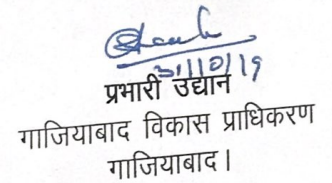 31/10/19
प्रभारी उद्यान
गाजियाबाद विकास प्राधिकरण
गाजियाबाद।